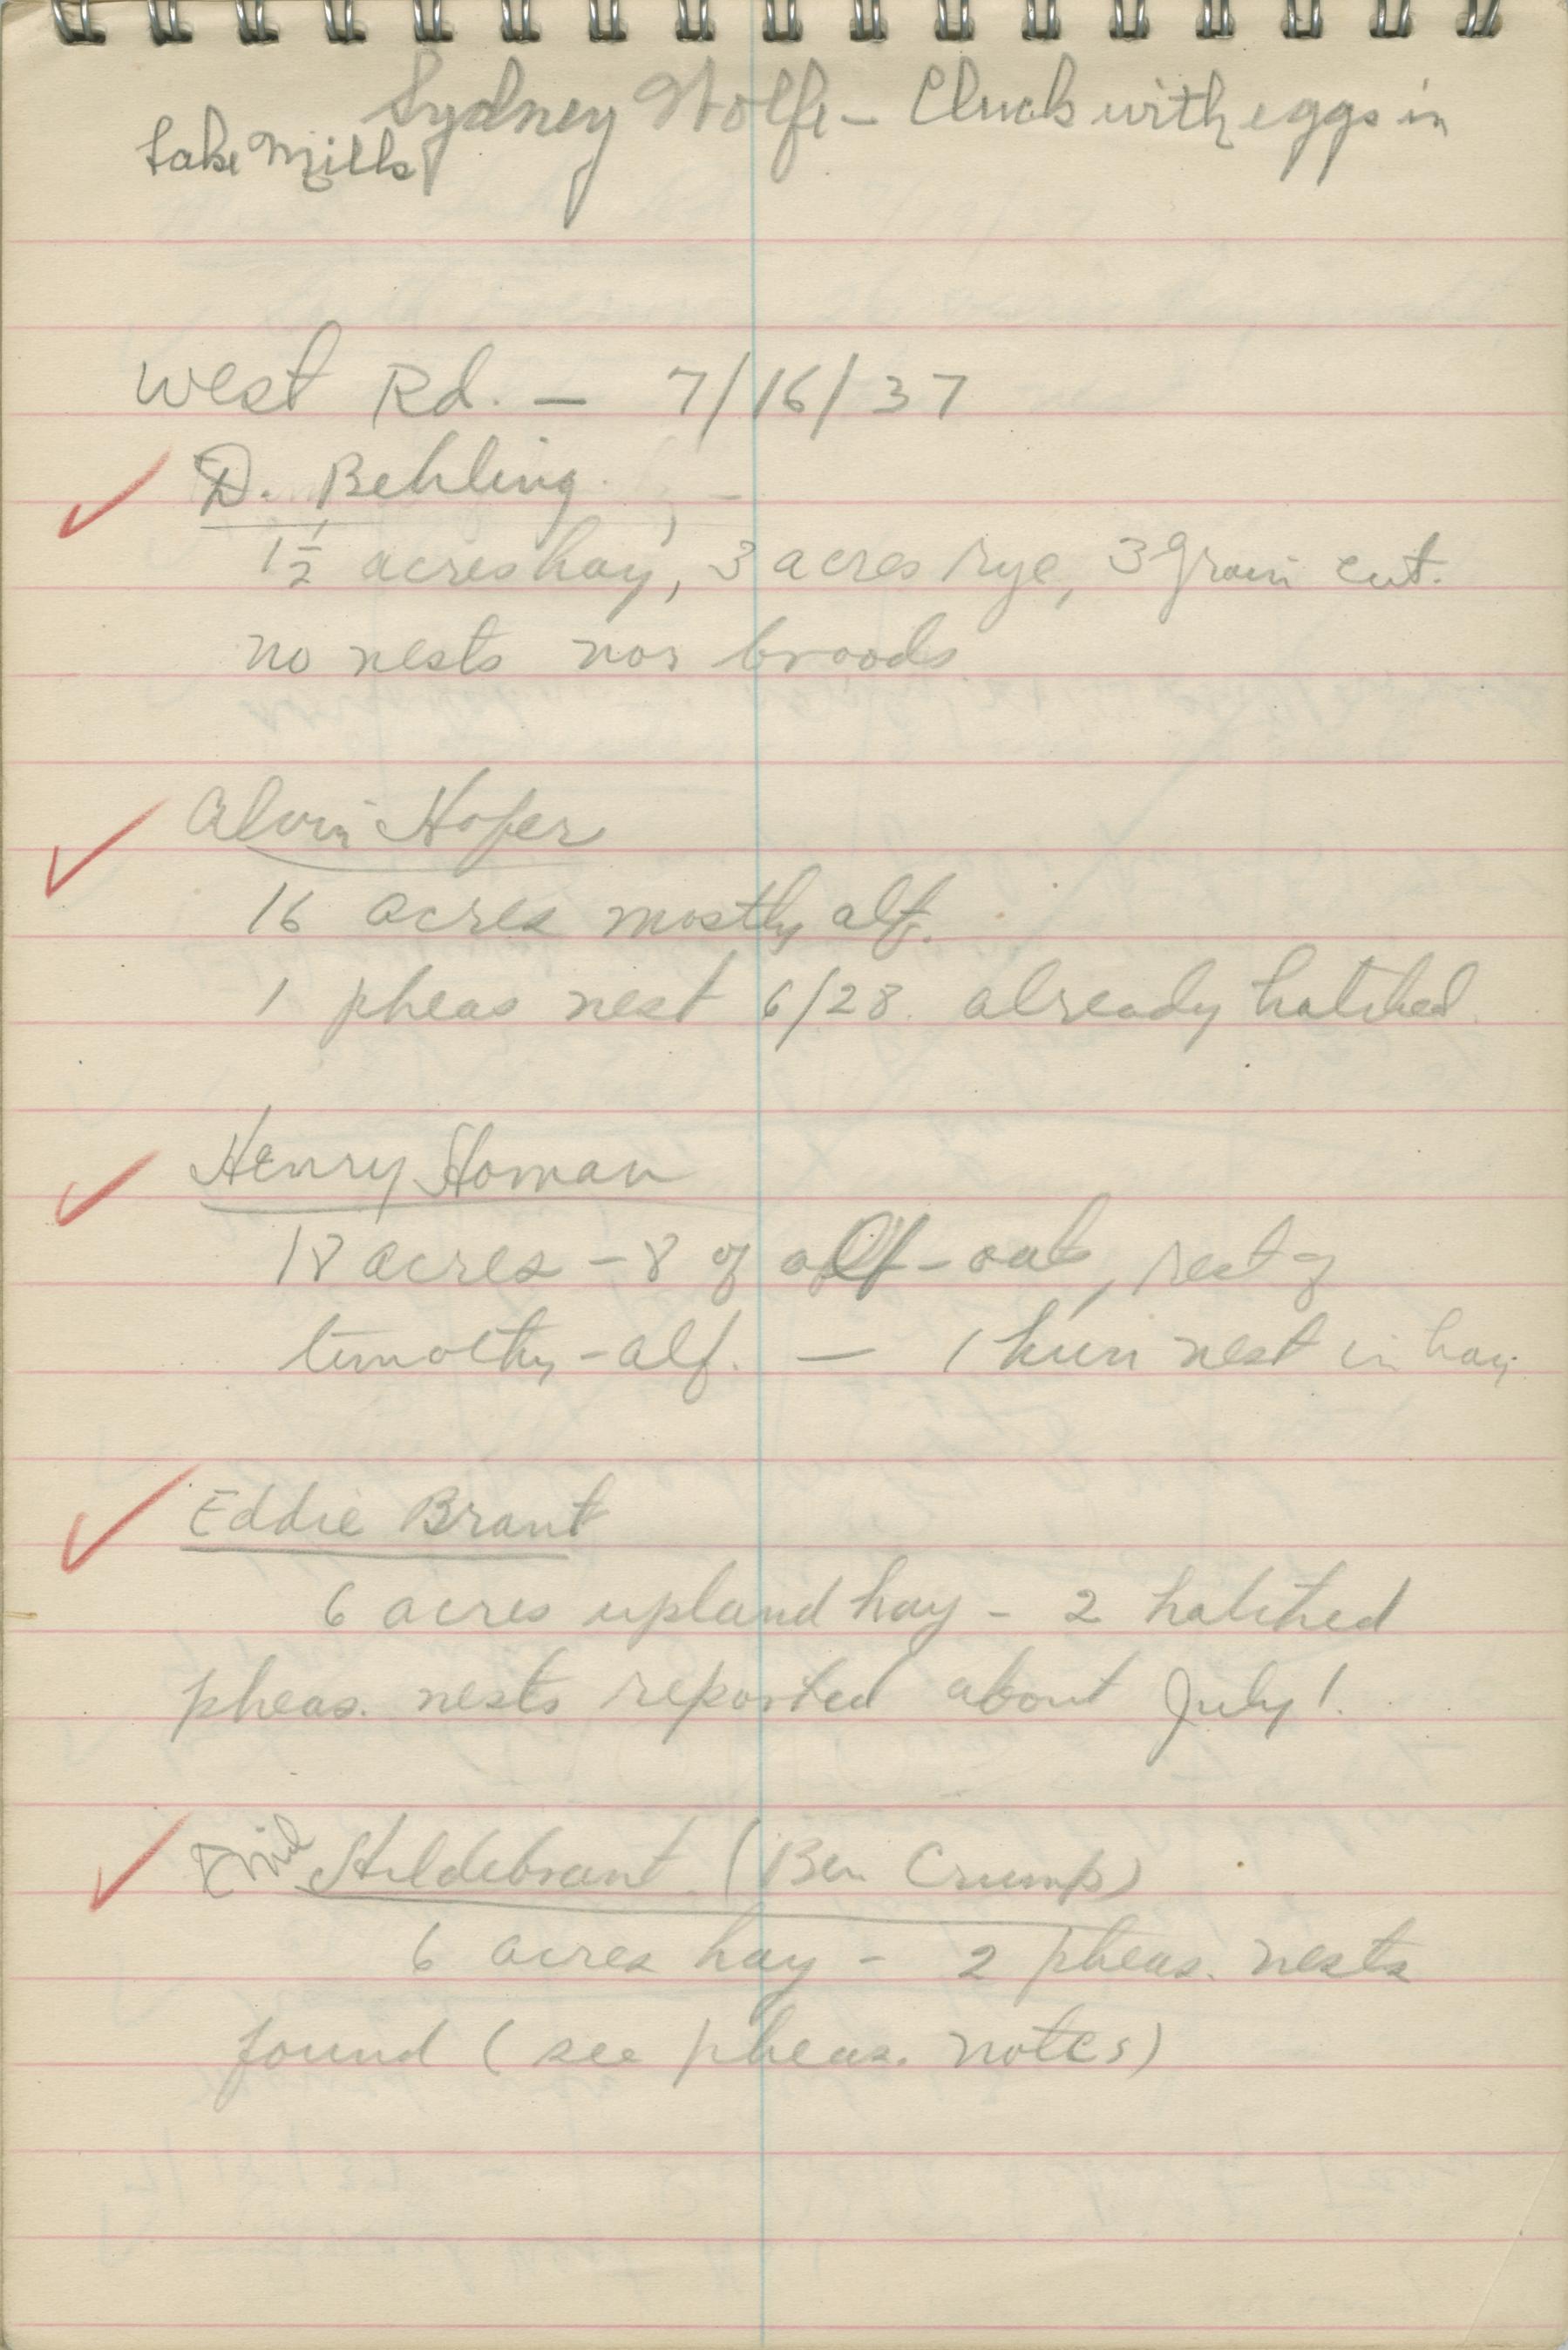 Sydney Wolfe - Cluck with eggs in
Lake Mills
West Rd. — 7/16/37
D. Behling -
1½ acres hay, 3 acres rye, 3 grain cut.
no nests nor broods
Alvin Hofer
16 acres mostly alf.
1 pheas nest 6/28. already hatched.
Henry Homan
18 acres - 8 of alf - oats, rest of
timothy - alf. — 1 hun nest in hay
Eddie Brant
6 acres upland hay - 2 hatched
pheas. nests reported about July 1.
Emil Hildebrant (Ben Crump)
6 acres hay - 2 pheas. nests
found (see pheas. notes)